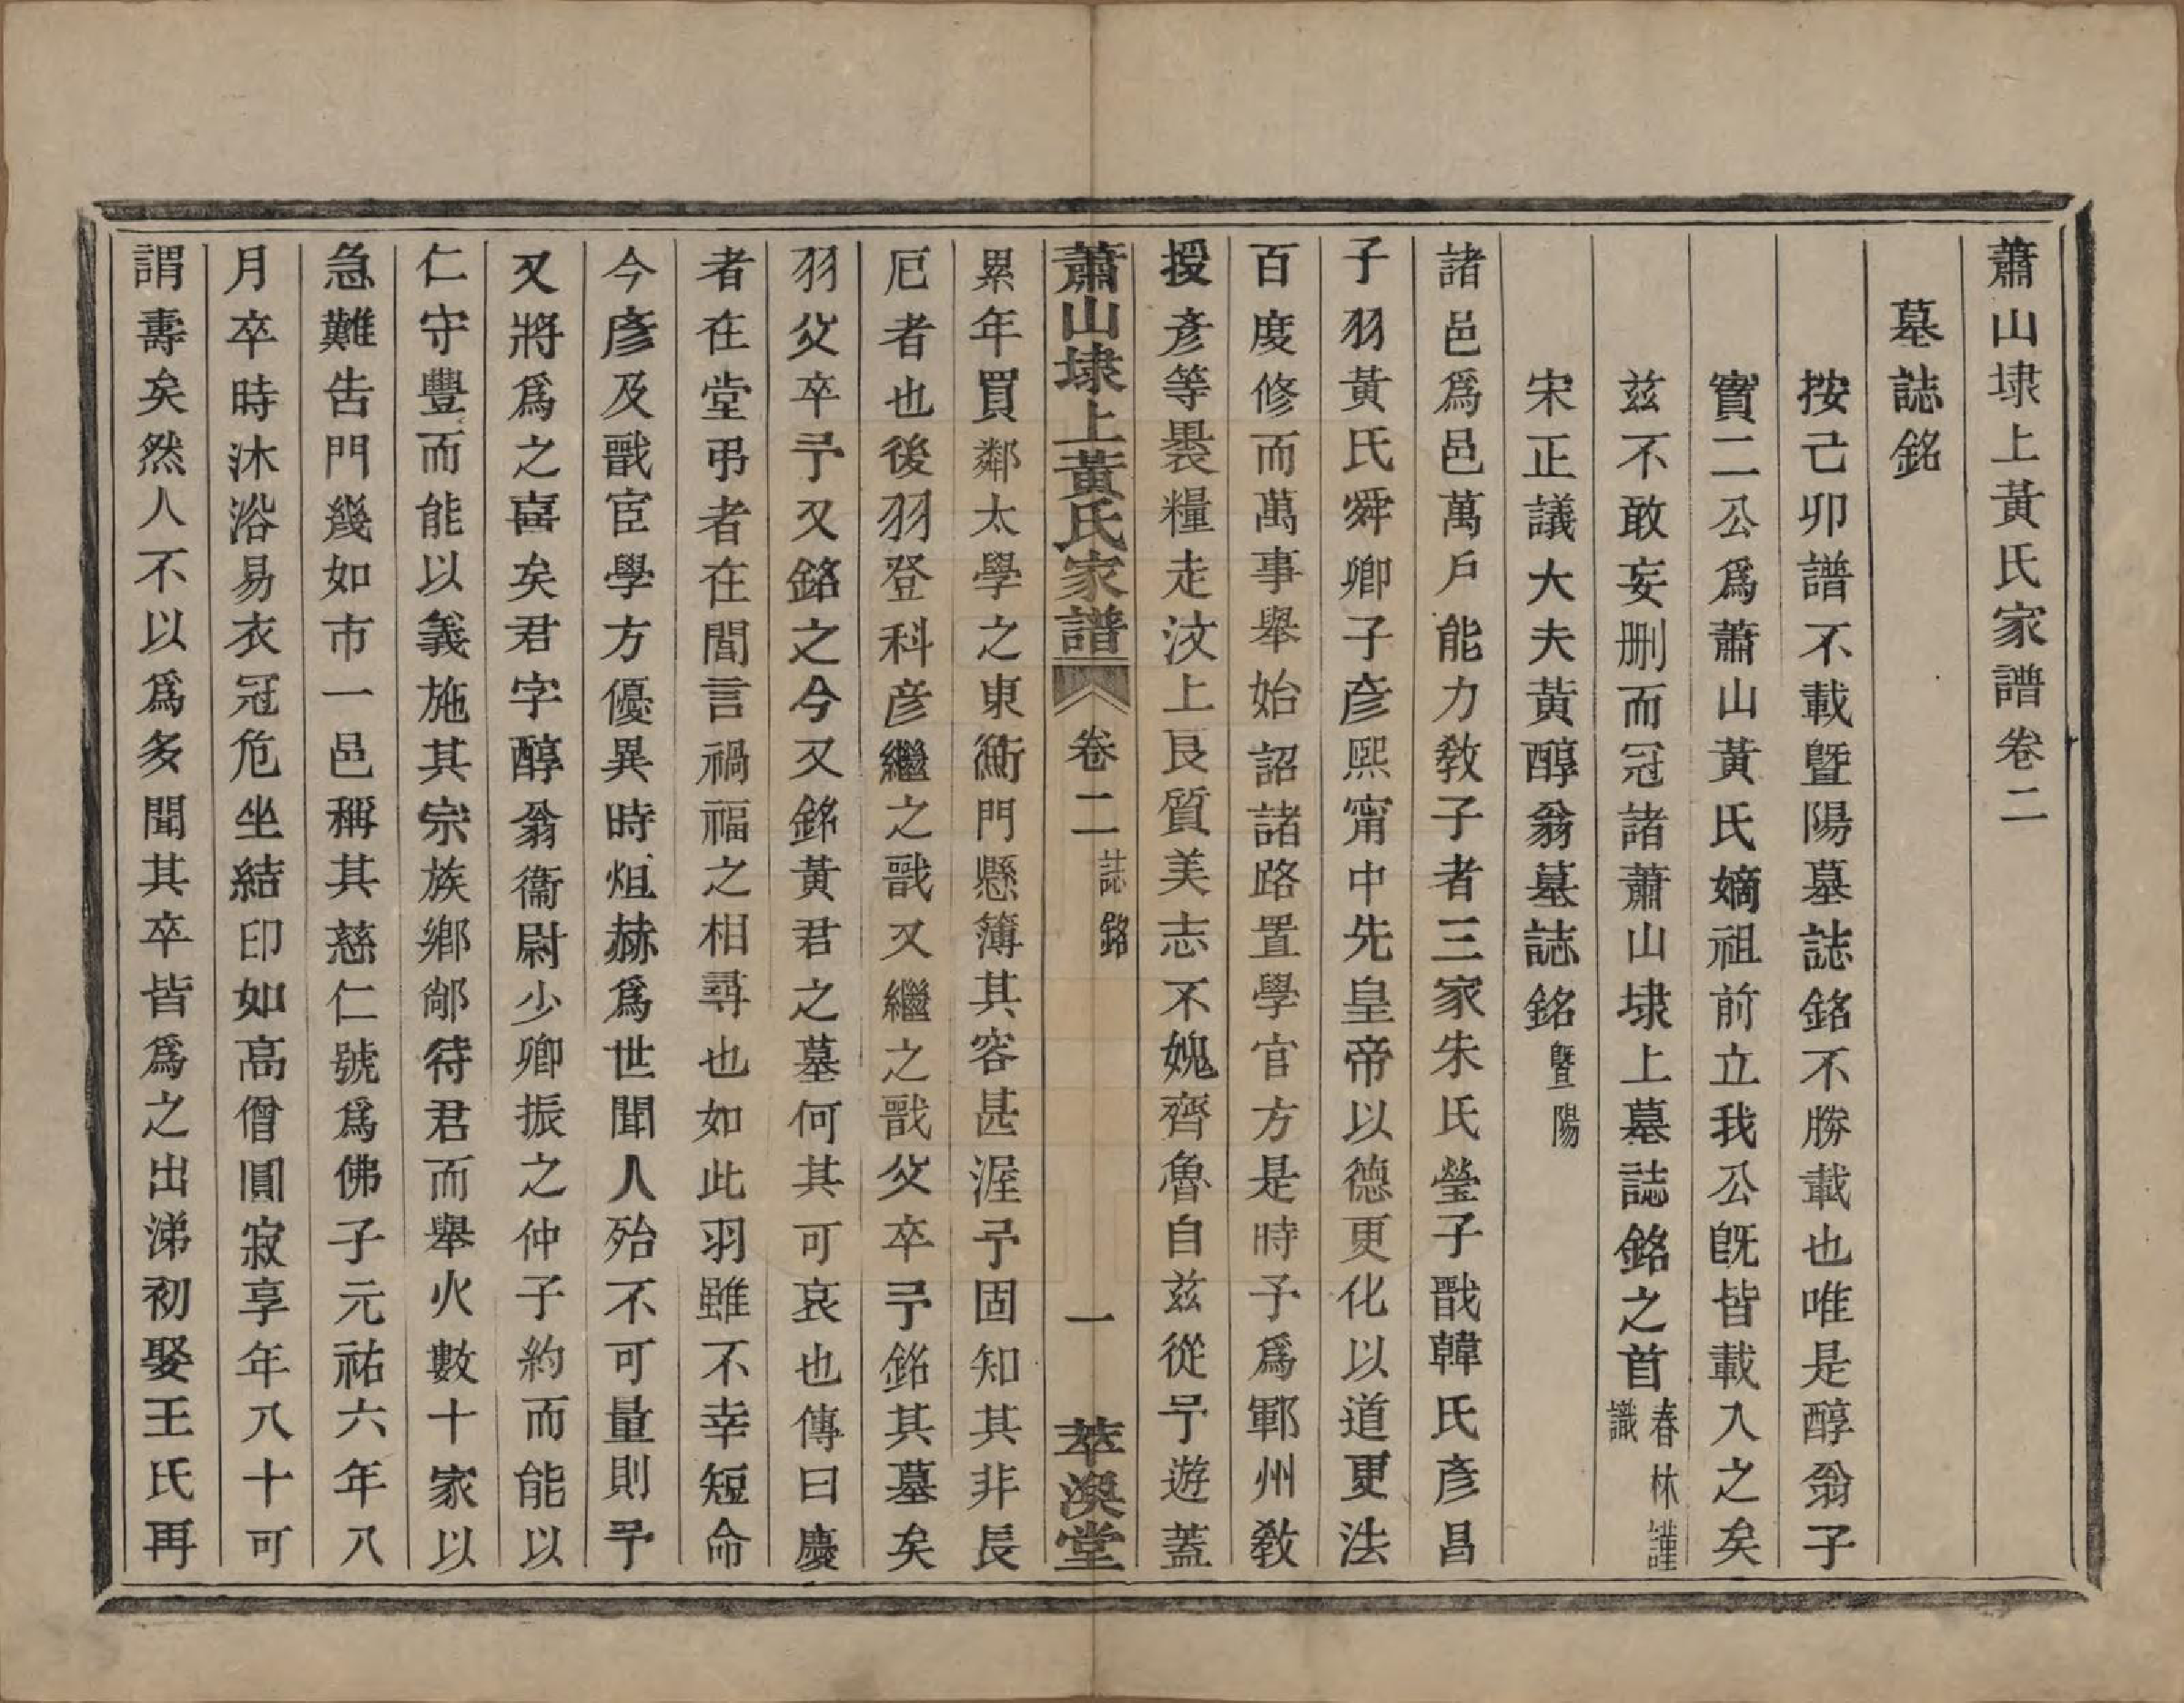 蕭山埭上黃氏家譜卷二
墓誌銘
按己卯譜不載曁陽墓誌銘不勝載也唯是醇翁子
實二公爲蕭山黃氏嫡祖前立我公旣皆載入之矣
兹不敢妄刪而冠諸蕭山埭上墓誌銘之首春林謹識
宋正議大夫黃醇翁墓誌銘曁陽
諸邑爲邑萬戶能力敎子者三家朱氏瑩子戩韓氏彥昌
子羽黃氏舜卿子彥熙甯中先皇帝以德更化以道更法
百度修而萬事舉始詔諸路置學官方是時予爲鄆州敎
授彥等褁糧走汶上艮質美志不媿齊魯自兹從予遊蓋
蕭山埭上黃氏家譜 卷二 誌銘 一 萃渙堂
累年買鄰太學之東衡門懸簿其容甚渥予固知其非長
厄者也後羽登科彦繼之戩又繼之戩父卒予銘其墓矣
羽父卒予又銘之今又銘黃君之墓何其可哀也傳曰慶
者在堂弔者在閭言禍福之相尋也如此羽雖不幸短命
今彥及戩宦學方優異時烜赫爲世聞人殆不可量則予
又將爲之喜矣君字醇翁衞尉少卿振之仲子約而能以
仁守豐而能以義施其宗族鄉鄰待君而舉火數十家以
急難吿門幾如市一邑稱其慈仁號爲佛子元祐六年八
月卒時沐浴易衣冠危坐結印如高僧圓寂享年八十可
謂壽矣然人不以爲多聞其卒皆爲之出涕初娶王氏再